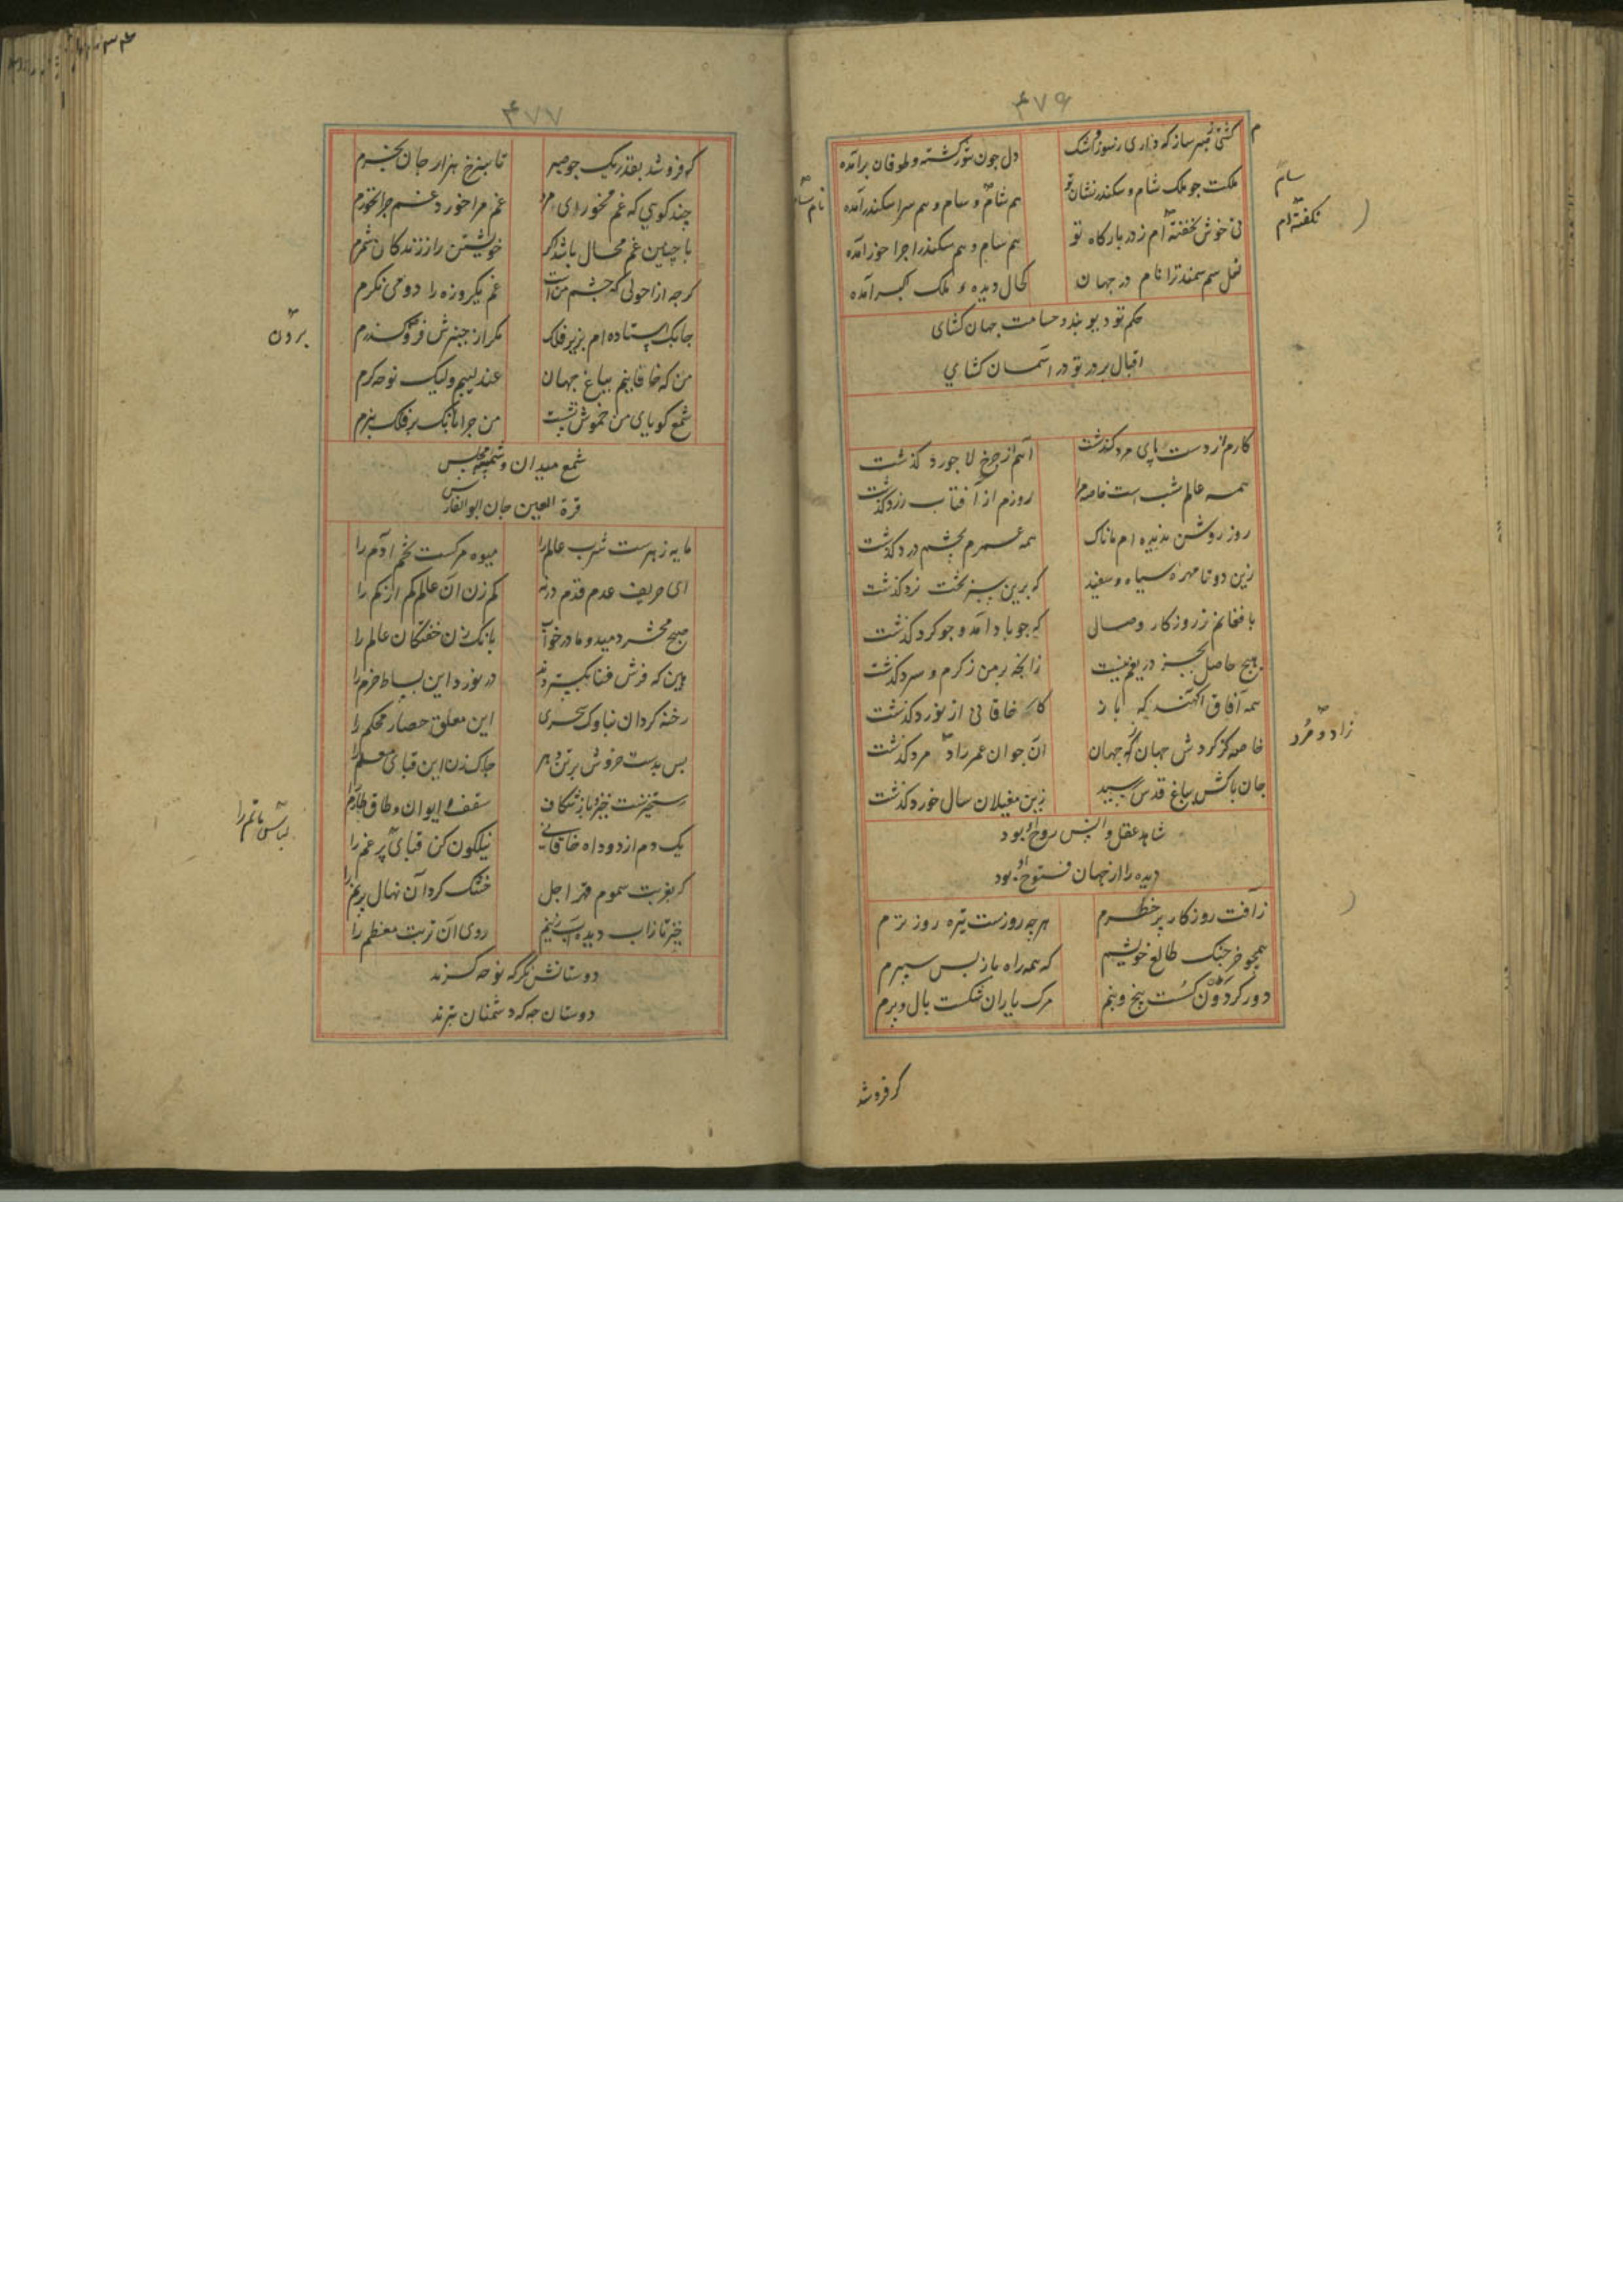 ۴۷۶
کشتی صبر ساز که داری ز سوز و اشک
دل چون تنور گشته و طوفان برآمده
ملکت چو ملک شام و سکندر نشان تو
هم شام و سام و هم سراسکندر آمده
نی خوش نخفته ام ز در بارکاه تو
هم سام و هم سکندر اجرا خور آمده
نعل سم سمند ترا نام در جهان
کحال دیده ملک اکبر آمده
حکم تو دیوبند و حسامت جهان کشای
اقبال بر در تو در آسمان کشای
کارم از دست پای مرد کذشت
آهم از چرخ لاجورد کذشت
همه عالم شب است خاصه مرا
روزم از آفتاب زرد کذشت
روز روشن ندیده ام مانا ک
همه عمرم بچشم درد کذشت
زین دو تا مهره سیاه و سفید
که برین سبز تخت نرد کذشت
با فغانم ز روزکار وصال
که چو باد آمد و چو کرد کذشت
هیچ حاصل بجز دریغم نیست
زانچه بر من ز کرم و سرد کذشت
همه آفاق آکهند که باز
کار خاقانی از نورد کذشت
خاصه کز کردش جهان ز جهان
آن جوان عمر راد مرد کذشت
جان پاکش بباغ قدس رسید
زین مغیلان سال خورد کذشت
شاهد عقل و انس روح او بود
دیده را از جهان فتوح او بود
ز آفت روزکار پر خطرم
هر چه روزست تیره روز ترم
همچو خرچنک طالع خویشم
که همه راه باز پس سپرم
دور کردون کسست بیخ و بنم
مرک یاران شکست بال و پرم
کر فروشد
سام
نکفته ام
نام سام
زاد و مرد
۴۷۷
کر فروشد بقدر یک جو صبر
تا بنرخ هزار جان بخرم
چند کویی که غم مخور ای مرد
غم مرا خورد غم چرا نخورم
با چنین غم محال باشد اکر
خویشتن را ز زندکان شمرم
کرچه از احولی که چشم مراست
غم یکروزه را دو می نکرم
چابک استاده ام بزیر فلک
مکر از چنبرش فرو کذرم
من که خاقانیم بباغ جهان
عندلیبم ولیک نوحه کرم
شمع کویای من خموش نشست
من چرا بانک بر فلک نبرم
شمع میدان و شمسه مجلس
قرة العین جان ابو الفارس
مایه زهرست شرب عالم را
میوه مرکست تخم آدم را
ای حریف عدم قدم درنه
کم زن آن عالم کم از کم را
صبح محشر دمید و ما در خواب
بانک زن خفتکان عالم را
هین که فرش فنا بکستردند
در نورد این بساط خرم را
رخنه کردان بناوک سحری
این معلق حصار محکم را
پس بدست خروش بر تن دهر
چاک زن این قبای معلم را
رستخیزست خیز و باز شکاف
سقف ایوان و طاق طارم را
یک دم از دود آه خاقانی
نیلکون کن قبای پر غم را
کر بغربت سموم قهر اجل
خشک کرد آن نهال پر نم را
خیز تا ز آب دیده آب زنیم
روی آن تربت معظم را
دوستانش نکر که نوحه کرند
دوستان چه که دشمنان بترند
بردن
لباس ماتم را